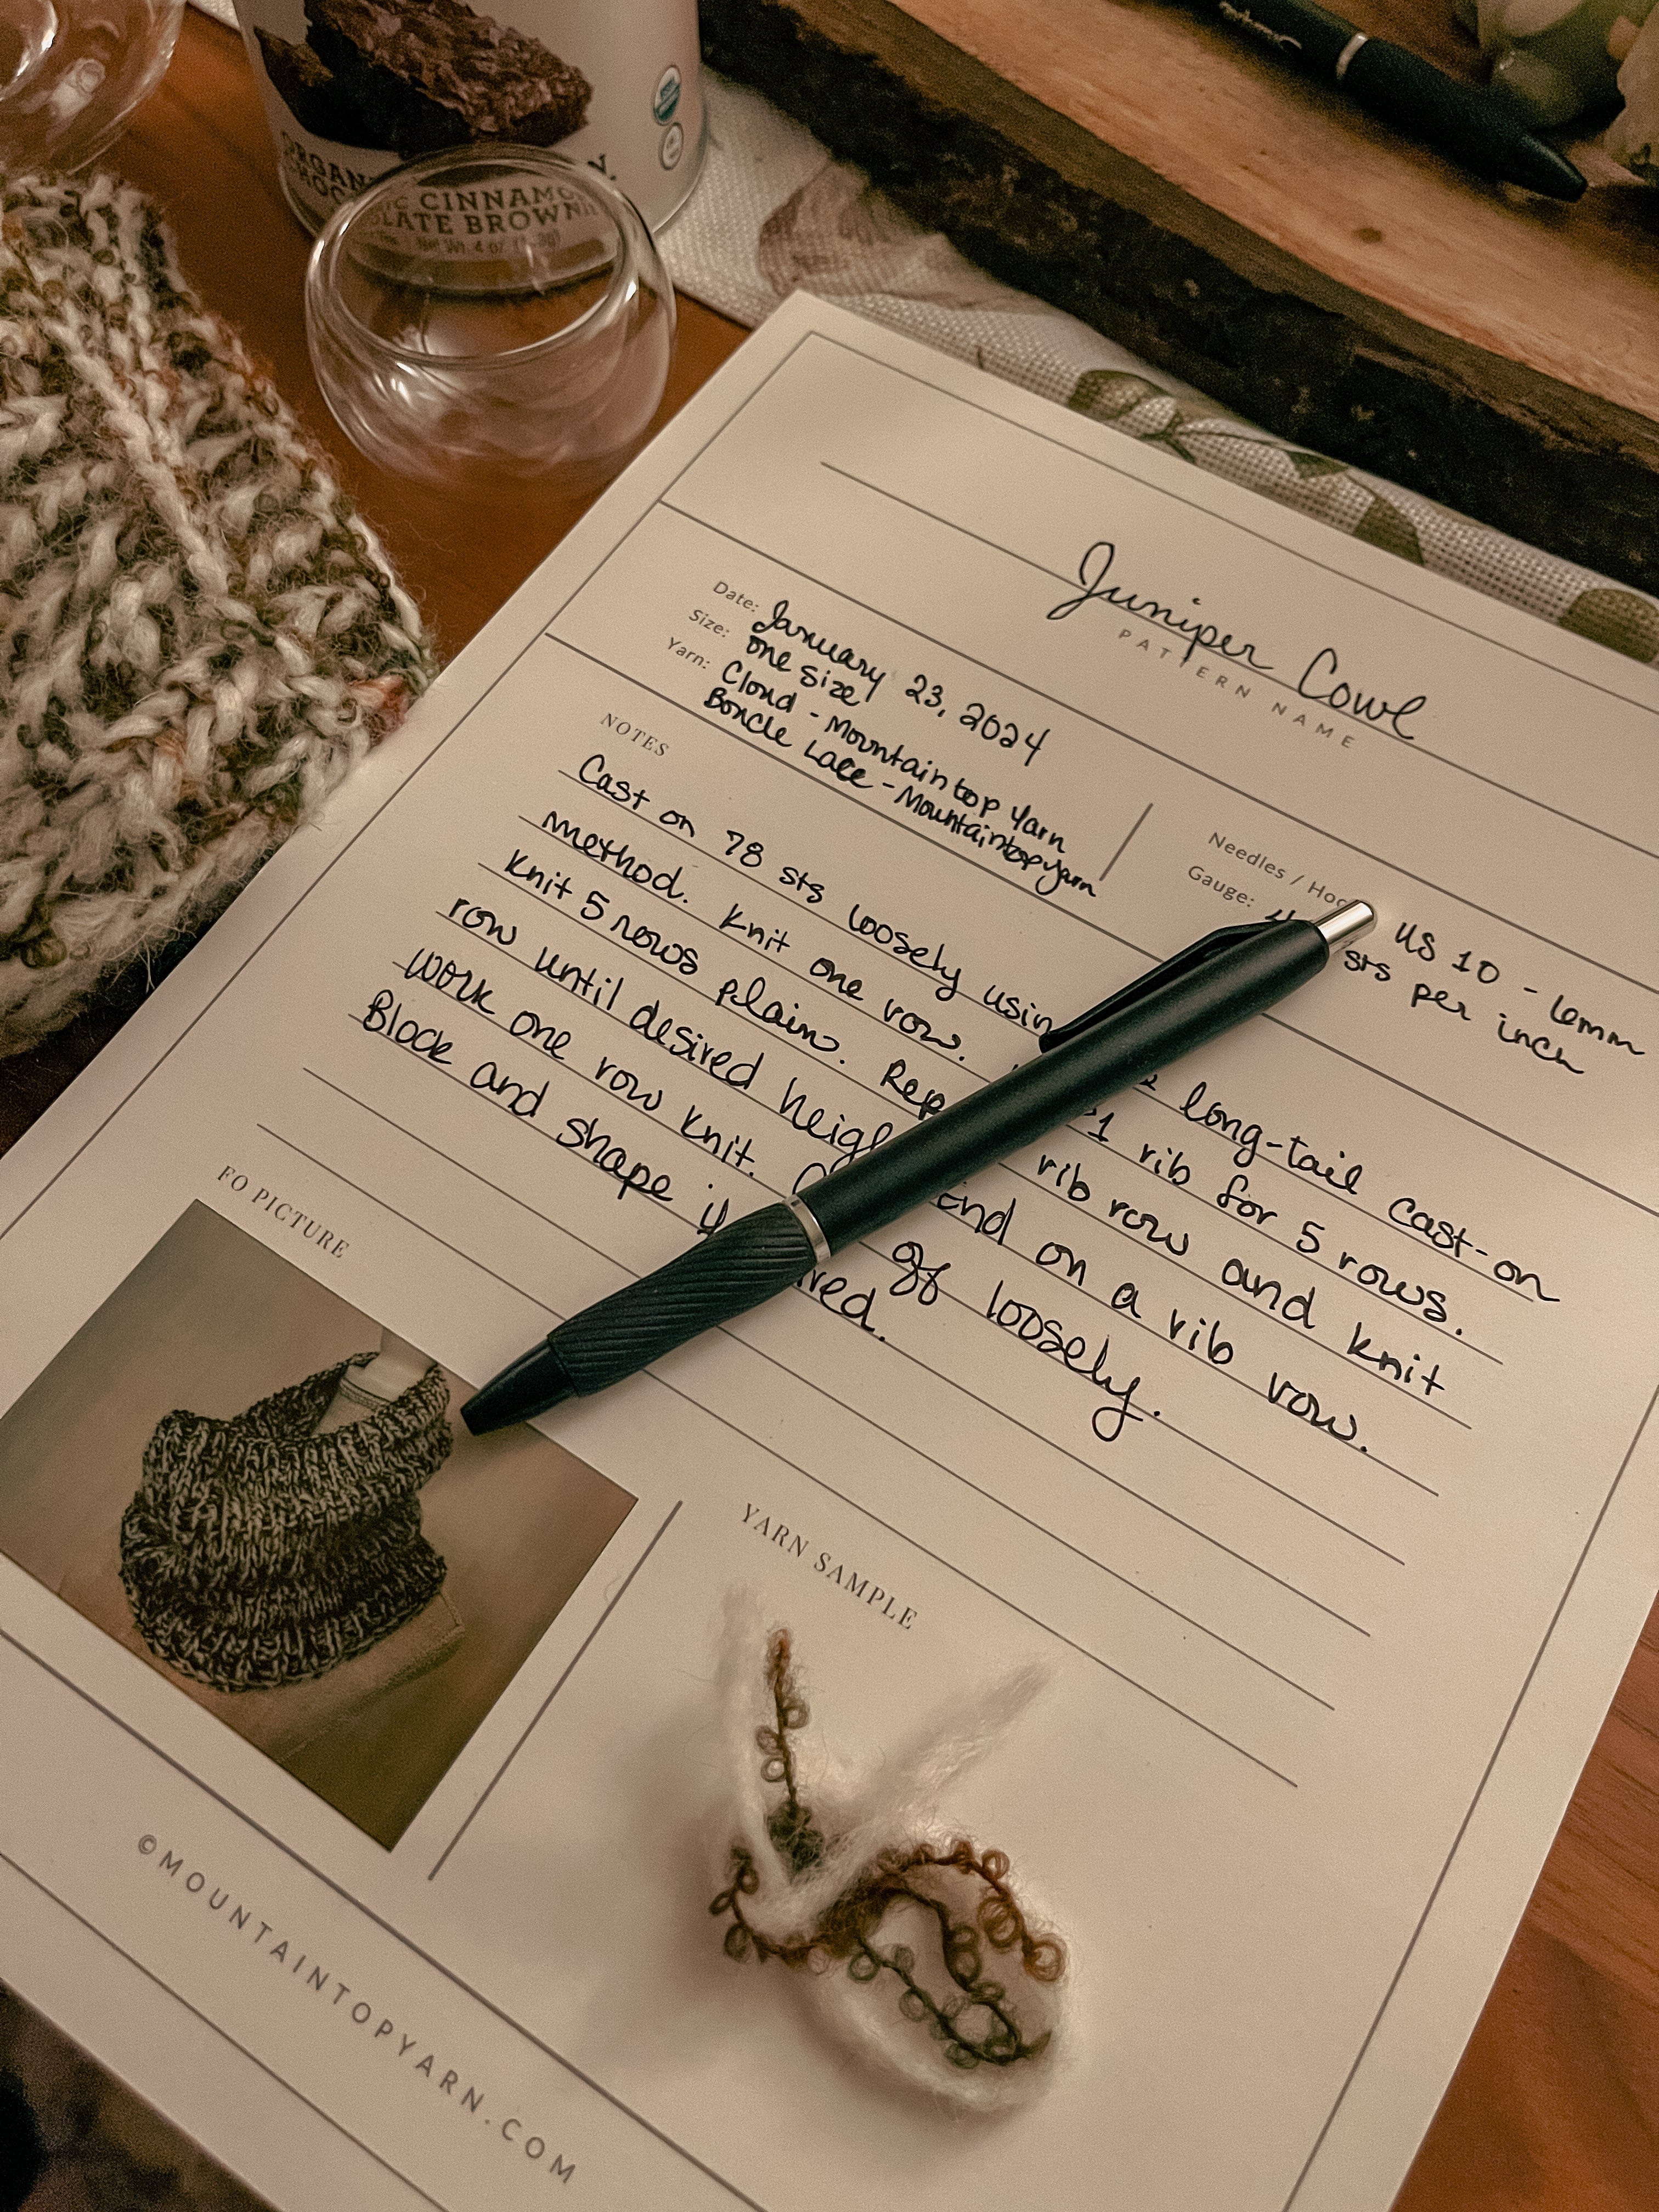 ORGANIC CINNAMON
CHOCOLATE BROWNIE
Net Wt. 4 oz.
Juniper Cowl
PATTERN NAME
Date: January 23, 2024
Size: One Size
Yarn: Cloud - Mountaintop Yarn
Boucle Lace - Mountaintopyarn
Needles / Hook US 10 - 6mm
Gauge: sts per inch
NOTES
Cast on 78 sts loosely using long-tail cast-on
method. Knit one row. 1 rib for 5 rows.
Knit 5 rows plain. Rep rib row and knit
row until desired height End on a rib row.
Work one row knit. off loosely.
Block and shape
FO PICTURE
YARN SAMPLE
©MOUNTAINTOPYARN.COM